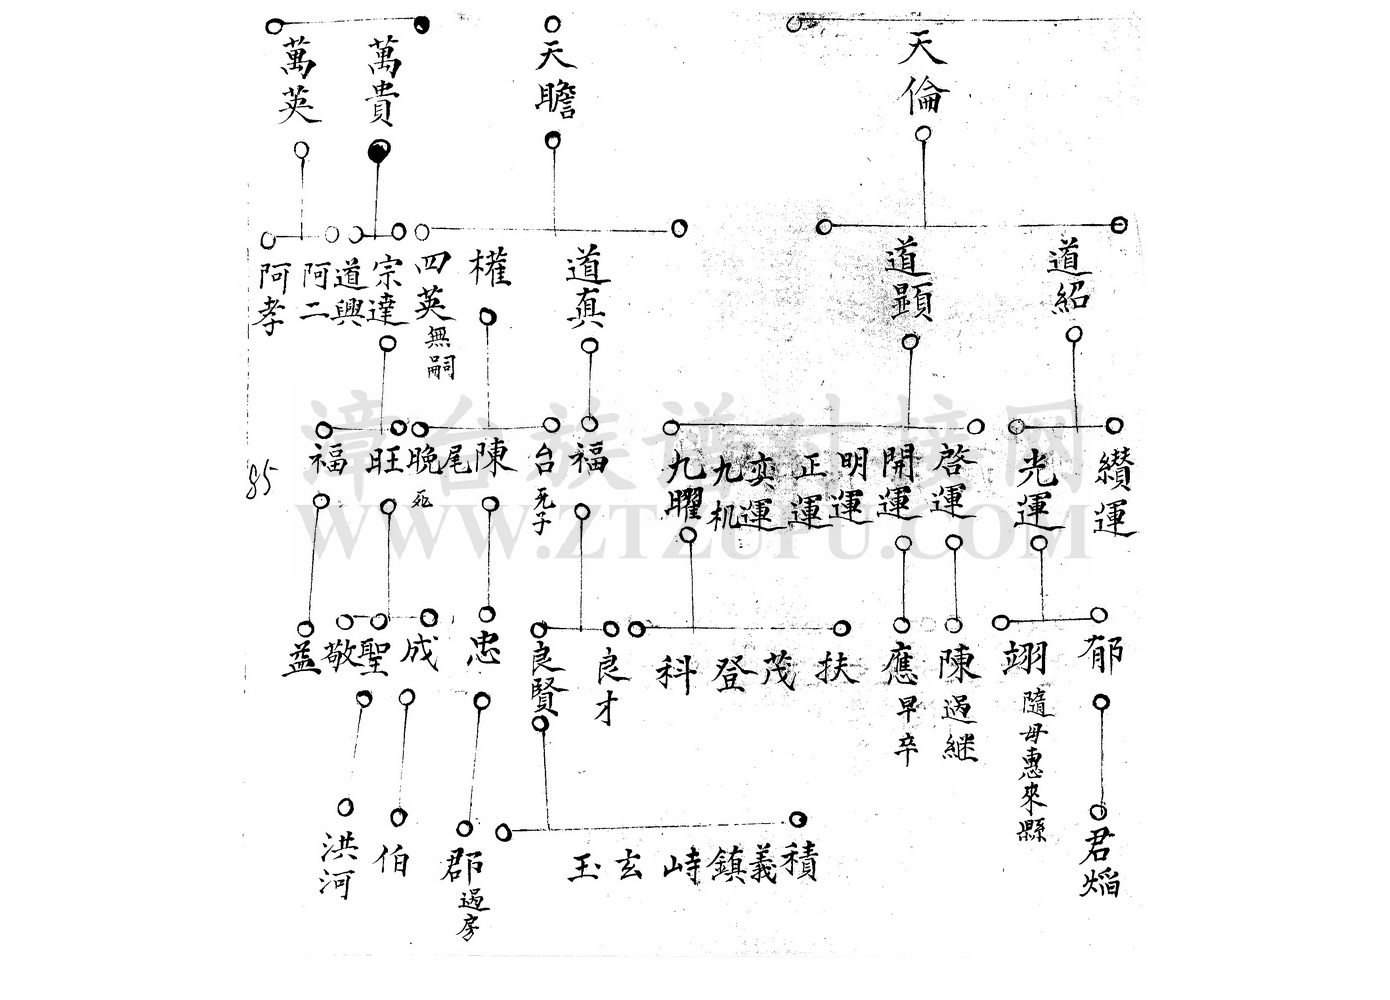 天倫
天瞻
萬貴
萬英
道紹
道顯
道真
權
四英 無嗣
宗達
道興
阿二
阿孝
纘運
光運
啓運
開運
明運
正運
奕運
九机
九曜
福
台 死子
陳
尾
晚 死
旺
福
郁
翊 隨母惠來縣
陳 過継
應 早卒
扶
茂
登
科
良才
良賢
忠
成
聖
敬
益
君焰
積
義
鎮
峙
玄
玉
郡 過房
伯
洪河
85
漳台族谱对接网
WWW.ZTZUPU.COM